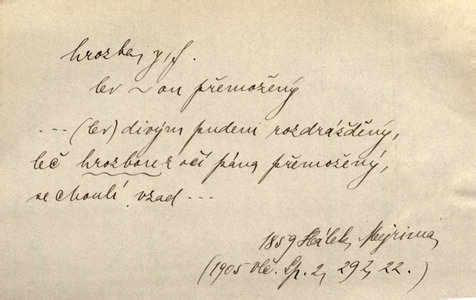 hrozba, y, f.
lev ~ou přemožený
... (lev) divým pudem rozdrážděný,
leč hrozbou z očí pána přemožený,
se choulí vzad ...
1859 Hálek, Mejrima,
(1905 Vlč. Sp. 2, 292, 22.)